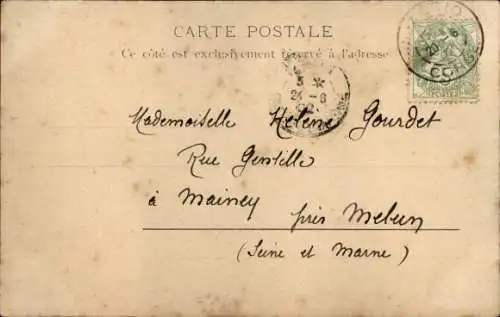 CARTE POSTALE
Ce côté est exclusivement réservé à l'adresse
Mademoiselle Helène Gourdet
Rue Gentille
à Mainey près Melun
(Seine et Marne)